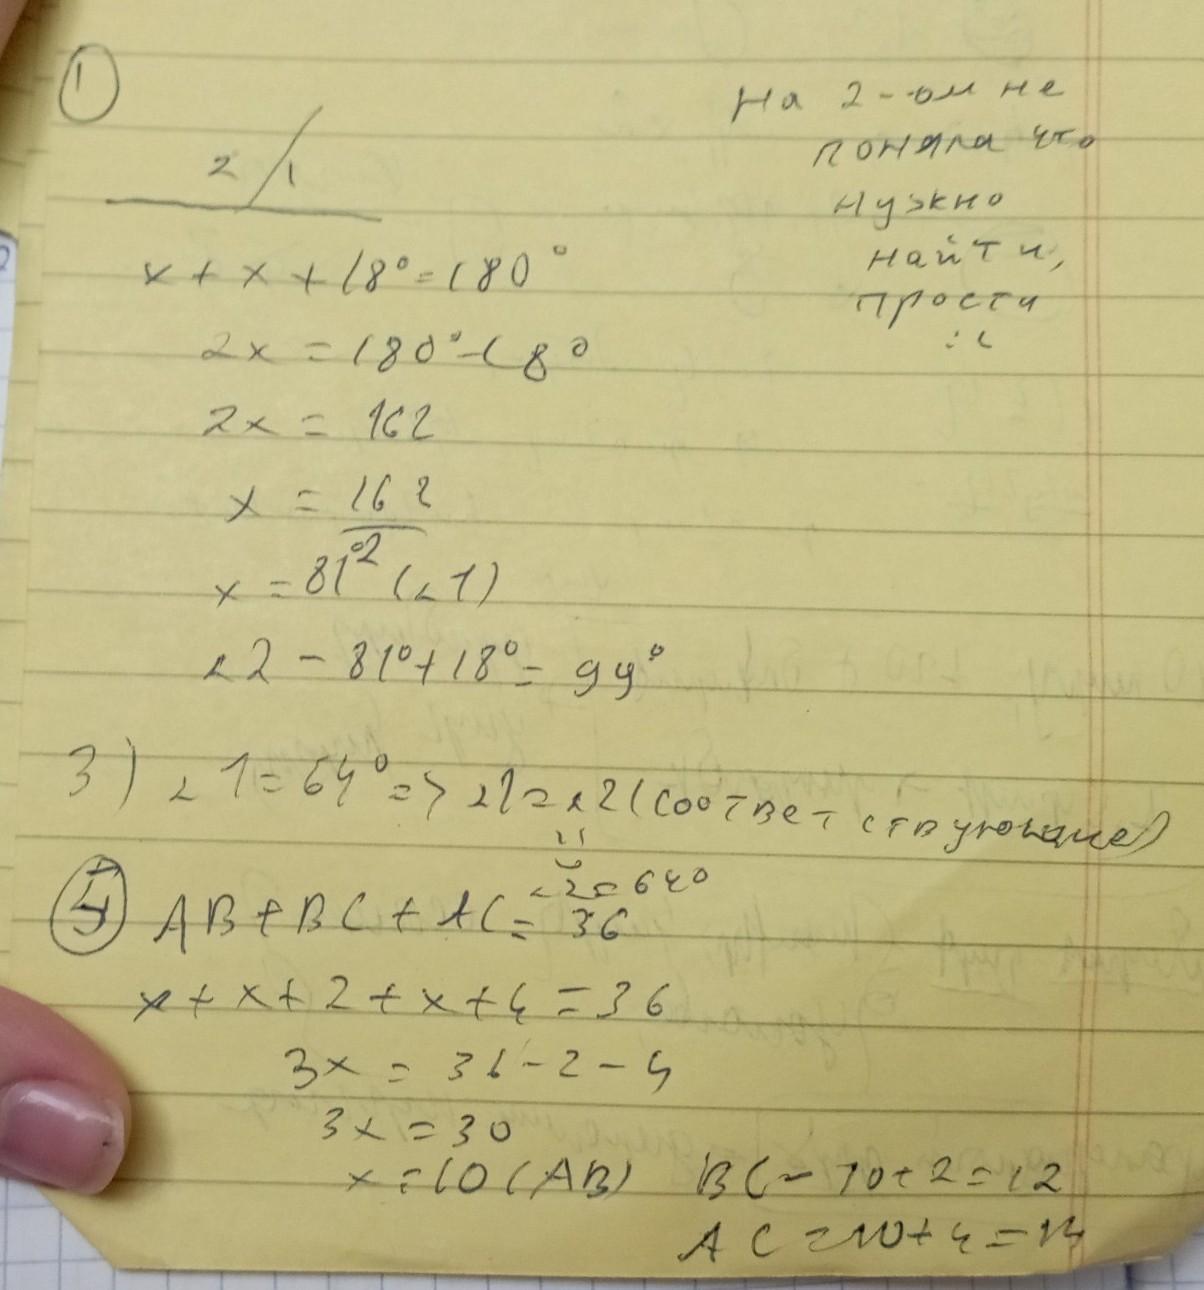 1
На 2-ом не
поняла что
нужно
найти,
прости
:(
2 1
x + x + 18° = 180°
2x = 180° - 18°
2x = 162
x = 162
2
x = 81° (∠1)
∠2 - 81° + 18° = 99°
3) ∠1 = 64° => ∠1 = ∠2 (соответствующие)
∠2 = 64°
AB + BC + AC = 36
x + x + 2 + x + 4 = 36
3x = 36 - 2 - 4
3x = 30
x = 10 (AB) BC - 10 + 2 = 12
AC = 10 + 4 = 14